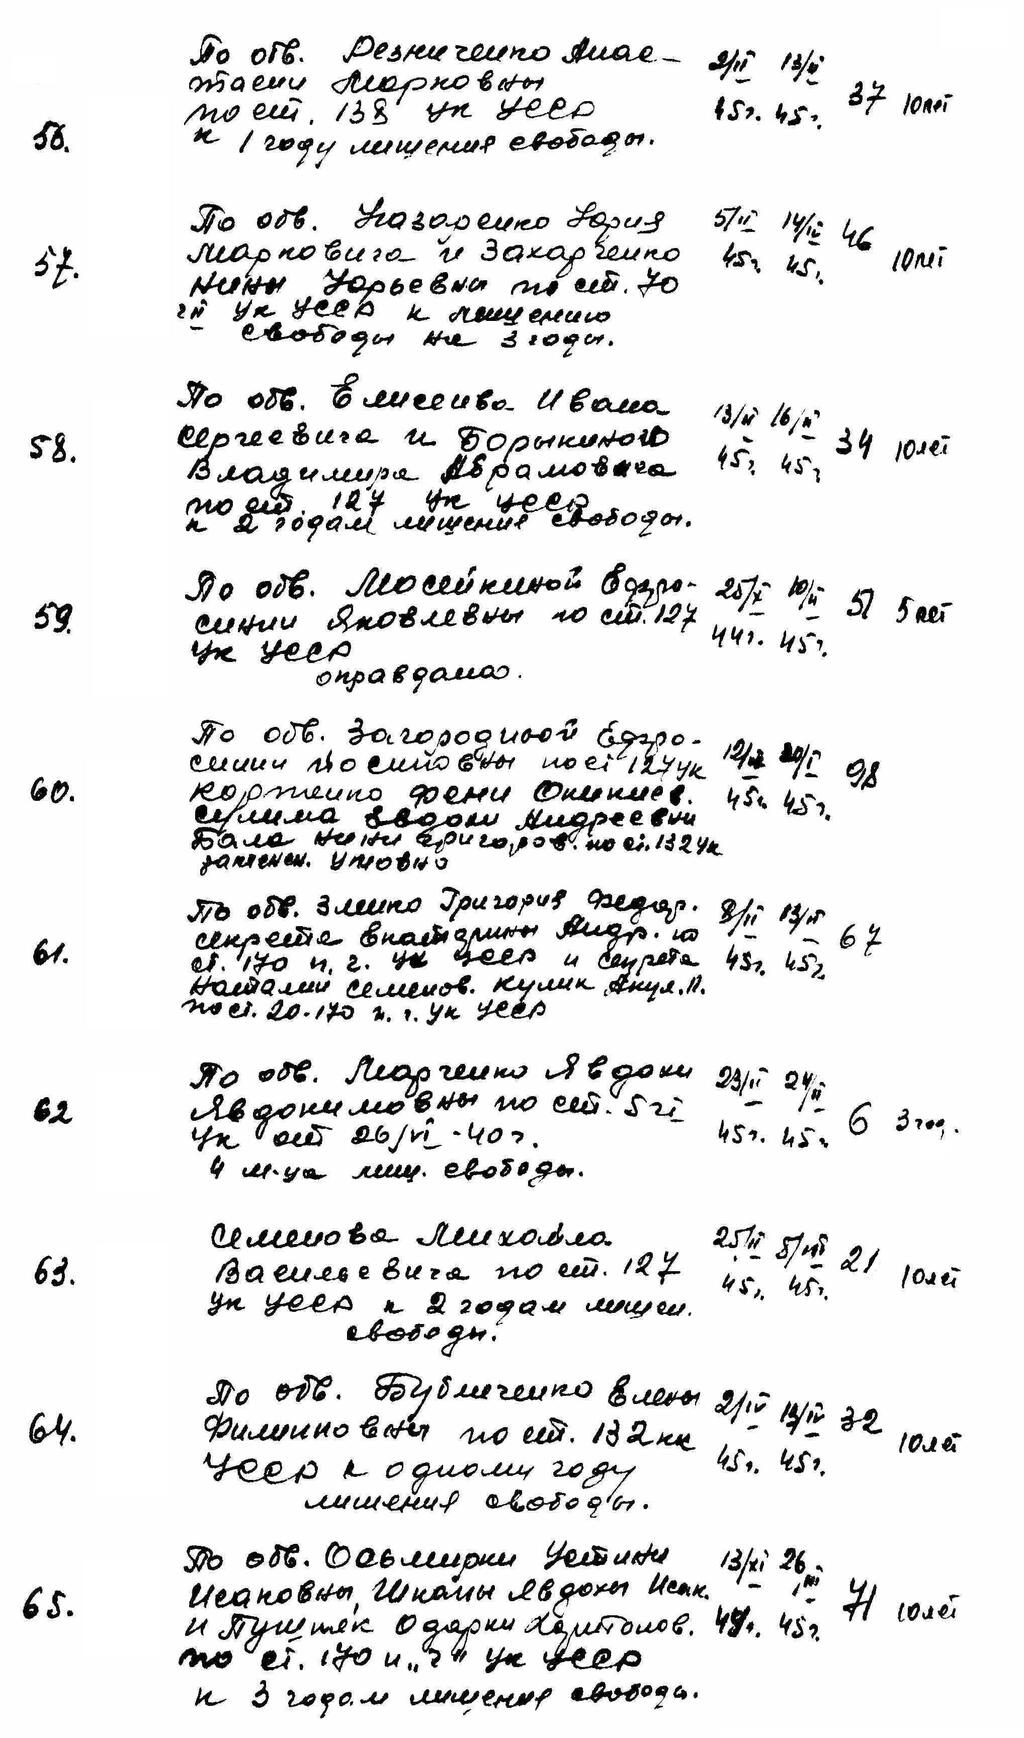 По обв. Резниченко Анас- 2/II 13/II
тасии Марковны 37 10 лет
по ст. 138 УК УССР 45г. 45г.
56. к 1 году лишения свободы.
По обв. Назаренко Юрия 5/II 14/IV 46
57. Марковича и Захарченко 45г. 45г. 10 лет
Нины Юрьевны по ст. 70
УК УССР к лишению
свободы на 3 годы.
По обв. Елисеева Ивана 13/II 16/II
58. Сергеевича и Борыкиного 34 10 лет
Владимира Абрамовича 45г. 45г.
по ст. 127 УК УССР
к 2 годам лишения свободы.
По обв. Мосейкиной Ефро- 25/XI 10/II 51 5 лет
59. синии Яковлевны по ст. 127 44г. 45г.
УК УССР
оправдана.
По обв. Загородной Ефро-
синии Иосиповны по ст 127 УК 98
60. Корженко Фени 45г. 45г.
Сулима Евдоки Андреевны
Бала Нины Григоров. по ст. 132 УК
условно
По обв. Змейко Григория Федор. 8/II 13/II
61. Секрета Екатерины Андр. по 67
ст. 170 п. г. УК УССР и Секрета 45г. 45г.
Наталии Семенов. Кулик Акул. П.
по ст. 20-170 п. г. УК УССР
По обв. Марченко Явдохи 23/II 24/II
62 Явдокимовны по ст. 5 ч I 6 3 год.
УК от 26/VI-40г. 45г. 45г.
4 м-ца лиш. свободы.
Семенова Михаила 25/II 5/VIII 21
63. Васильевича по ст. 127 45г. 45г. 10 лет
УК УССР к 2 годам лишен.
свободы.
По обв. Бубличенко Елены 2/IV 13/IV 32
64. Филипповны по ст. 132 УК 10 лет
УССР к одному году 45г. 45г.
лишения свободы.
По обв. Осьмирки Устини 13/XI 26/III
65. Исаковны, Шкапы Явдохы Исак. 71 10 лет
и Пушняк Одарки Харитонов. 44г. 45г.
по ст. 170 п. „г" УК УССР
к 3 годам лишения свободы.